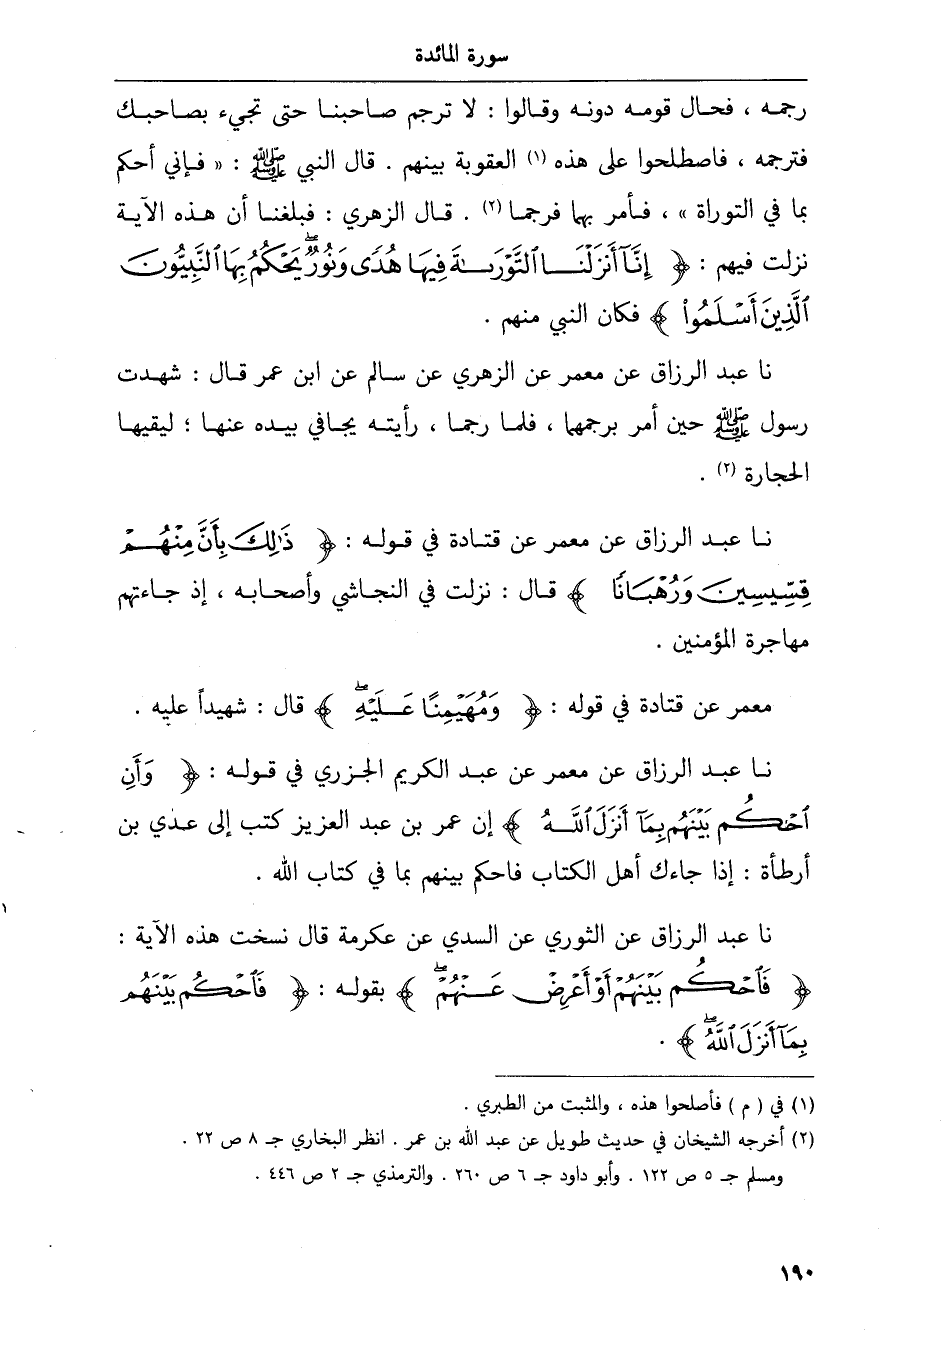 سورة المائدة
رجمه ، فحال قومه دونه وقالوا : لا ترجم صاحبنا حتى تجيء بصاحبك
فترجمه ، فاصطلحوا على هذه (١) العقوبة بينهم . قال النبي ﷺ : « فإني أحكم
بما في التوراة » ، فأمر بها فرجما (٢) . قال الزهري : فبلغنا أن هذه الآية
نزلت فيهم : ﴿ إِنَّآ أَنزَلْنَا ٱلتَّوْرَىٰةَ فِيهَا هُدًى وَنُورٌ ۚ يَحْكُمُ بِهَا ٱلنَّبِيُّونَ
ٱلَّذِينَ أَسْلَمُوا۟ ﴾ فكان النبي منهم .
نا عبد الرزاق عن معمر عن الزهري عن سالم عن ابن عمر قال : شهدت
رسول ﷺ حين أمر برجمها ، فلما رجما ، رأيته يجافي بيده عنها ؛ ليقيها
الحجارة (٢) .
نا عبد الرزاق عن معمر عن قتادة في قوله : ﴿ ذَٰلِكَ بِأَنَّ مِنْهُمْ
قِسِّيسِينَ وَرُهْبَانًا ﴾ قال : نزلت في النجاشي وأصحابه ، إذ جاءتهم
مهاجرة المؤمنين .
معمر عن قتادة في قوله : ﴿ وَمُهَيْمِنًا عَلَيْهِ ۖ ﴾ قال : شهيداً عليه .
نا عبد الرزاق عن معمر عن عبد الكريم الجزري في قوله : ﴿ وَأَنِ
ٱحْكُم بَيْنَهُم بِمَآ أَنزَلَ ٱللَّهُ ﴾ إن عمر بن عبد العزيز كتب إلى عدي بن
أرطأة : إذا جاءك أهل الكتاب فاحكم بينهم بما في كتاب الله .
نا عبد الرزاق عن الثوري عن السدي عن عكرمة قال نسخت هذه الآية :
﴿ فَٱحْكُم بَيْنَهُمْ أَوْ أَعْرِضْ عَنْهُمْ ۖ ﴾ بقوله : ﴿ فَٱحْكُم بَيْنَهُم
بِمَآ أَنزَلَ ٱللَّهُ ۖ ﴾ .
(١) في ( م ) فأصلحوا هذه ، والمثبت من الطبري .
(٢) أخرجه الشيخان في حديث طويل عن عبد الله بن عمر . انظر البخاري جـ ٨ ص ٢٢ .
ومسلم جـ ٥ ص ١٢٢ . وأبو داود جـ ٦ ص ٢٦٠ . والترمذي جـ ٢ ص ٤٤٦ .
١٩٠